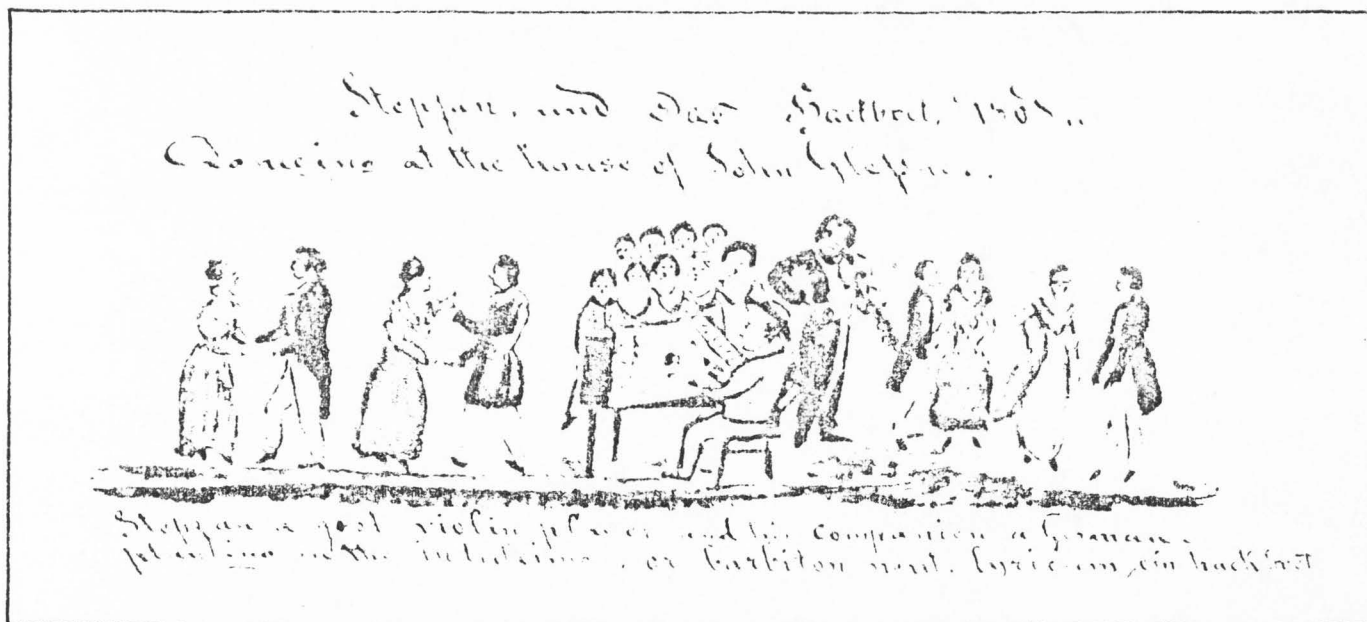 Steppan, und Das Hackbret,
Dancing at the house of John
Steppan a good violin player and his companion a German.
playing on the or barbiton lyricum, ein hackbret